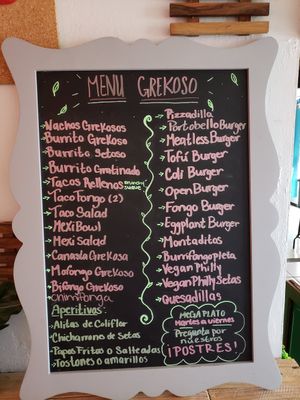 MENU GREKOSO
Nachos Grekosos
Burrito Grekoso
Burrito Setoso
Burrito Gratinado
Tacos Rellenos
Taco Fongo (2)
Taco Salad
Mexi Bowl
Mexi Salad
Canasta Grekosa
Mofongo Grekoso
Bifongo Grekoso
Chimifonga
Aperitivos:
Alitas de Coliflor
Chicharrones de Setas
Papas Fritas o Salteadas
Tostones o amarillos
Pizzadilla
Portobello Burger
Meatless Burger
Tofú Burger
Coli Burger
Open Burger
Fongo Burger
Eggplant Burger
Montaditos
Burrifongopleta
Vegan Philly
Vegan Philly Setas
Quesadillas
MEGA PLATO
Martes a viernes
Pregunta por
nuestros
¡POSTRES!